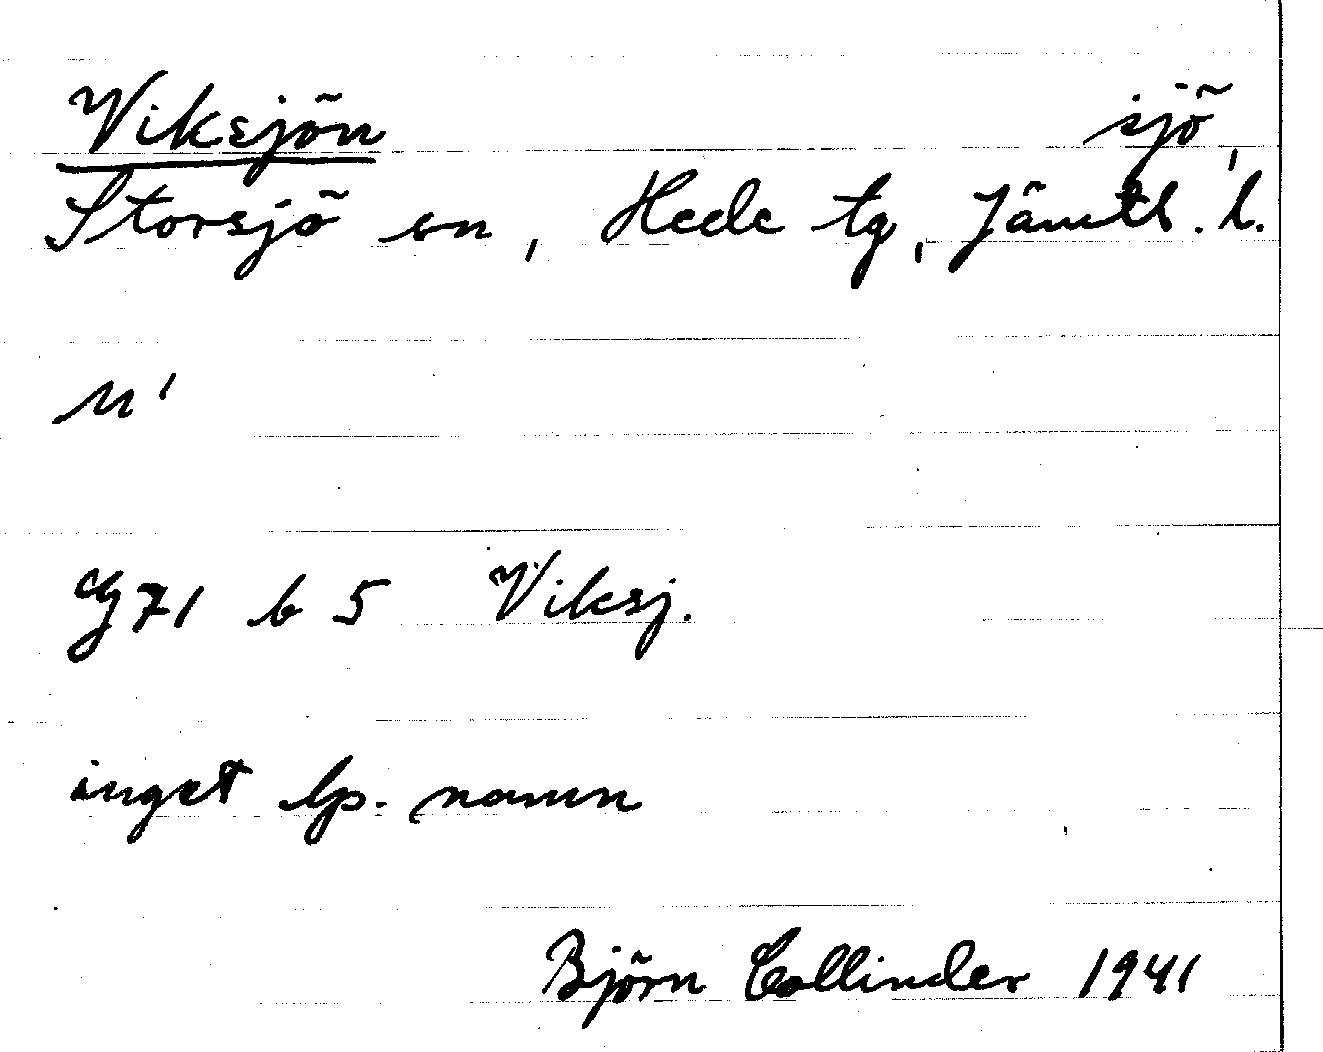 Viksjön sjö,
Storsjö sn, Hede tg, Jämtl. l.
G 71 b 5 Viksj.
inget lp. namn
Björn Collinder 1941